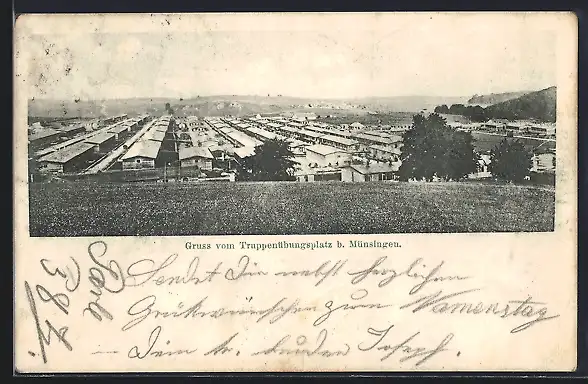 Gruss vom Truppenübungsplatz b. Münsingen.
Sendet Dir nebst herzlichen
Glückwünschen zum Namenstag
Dein tr. Josef.